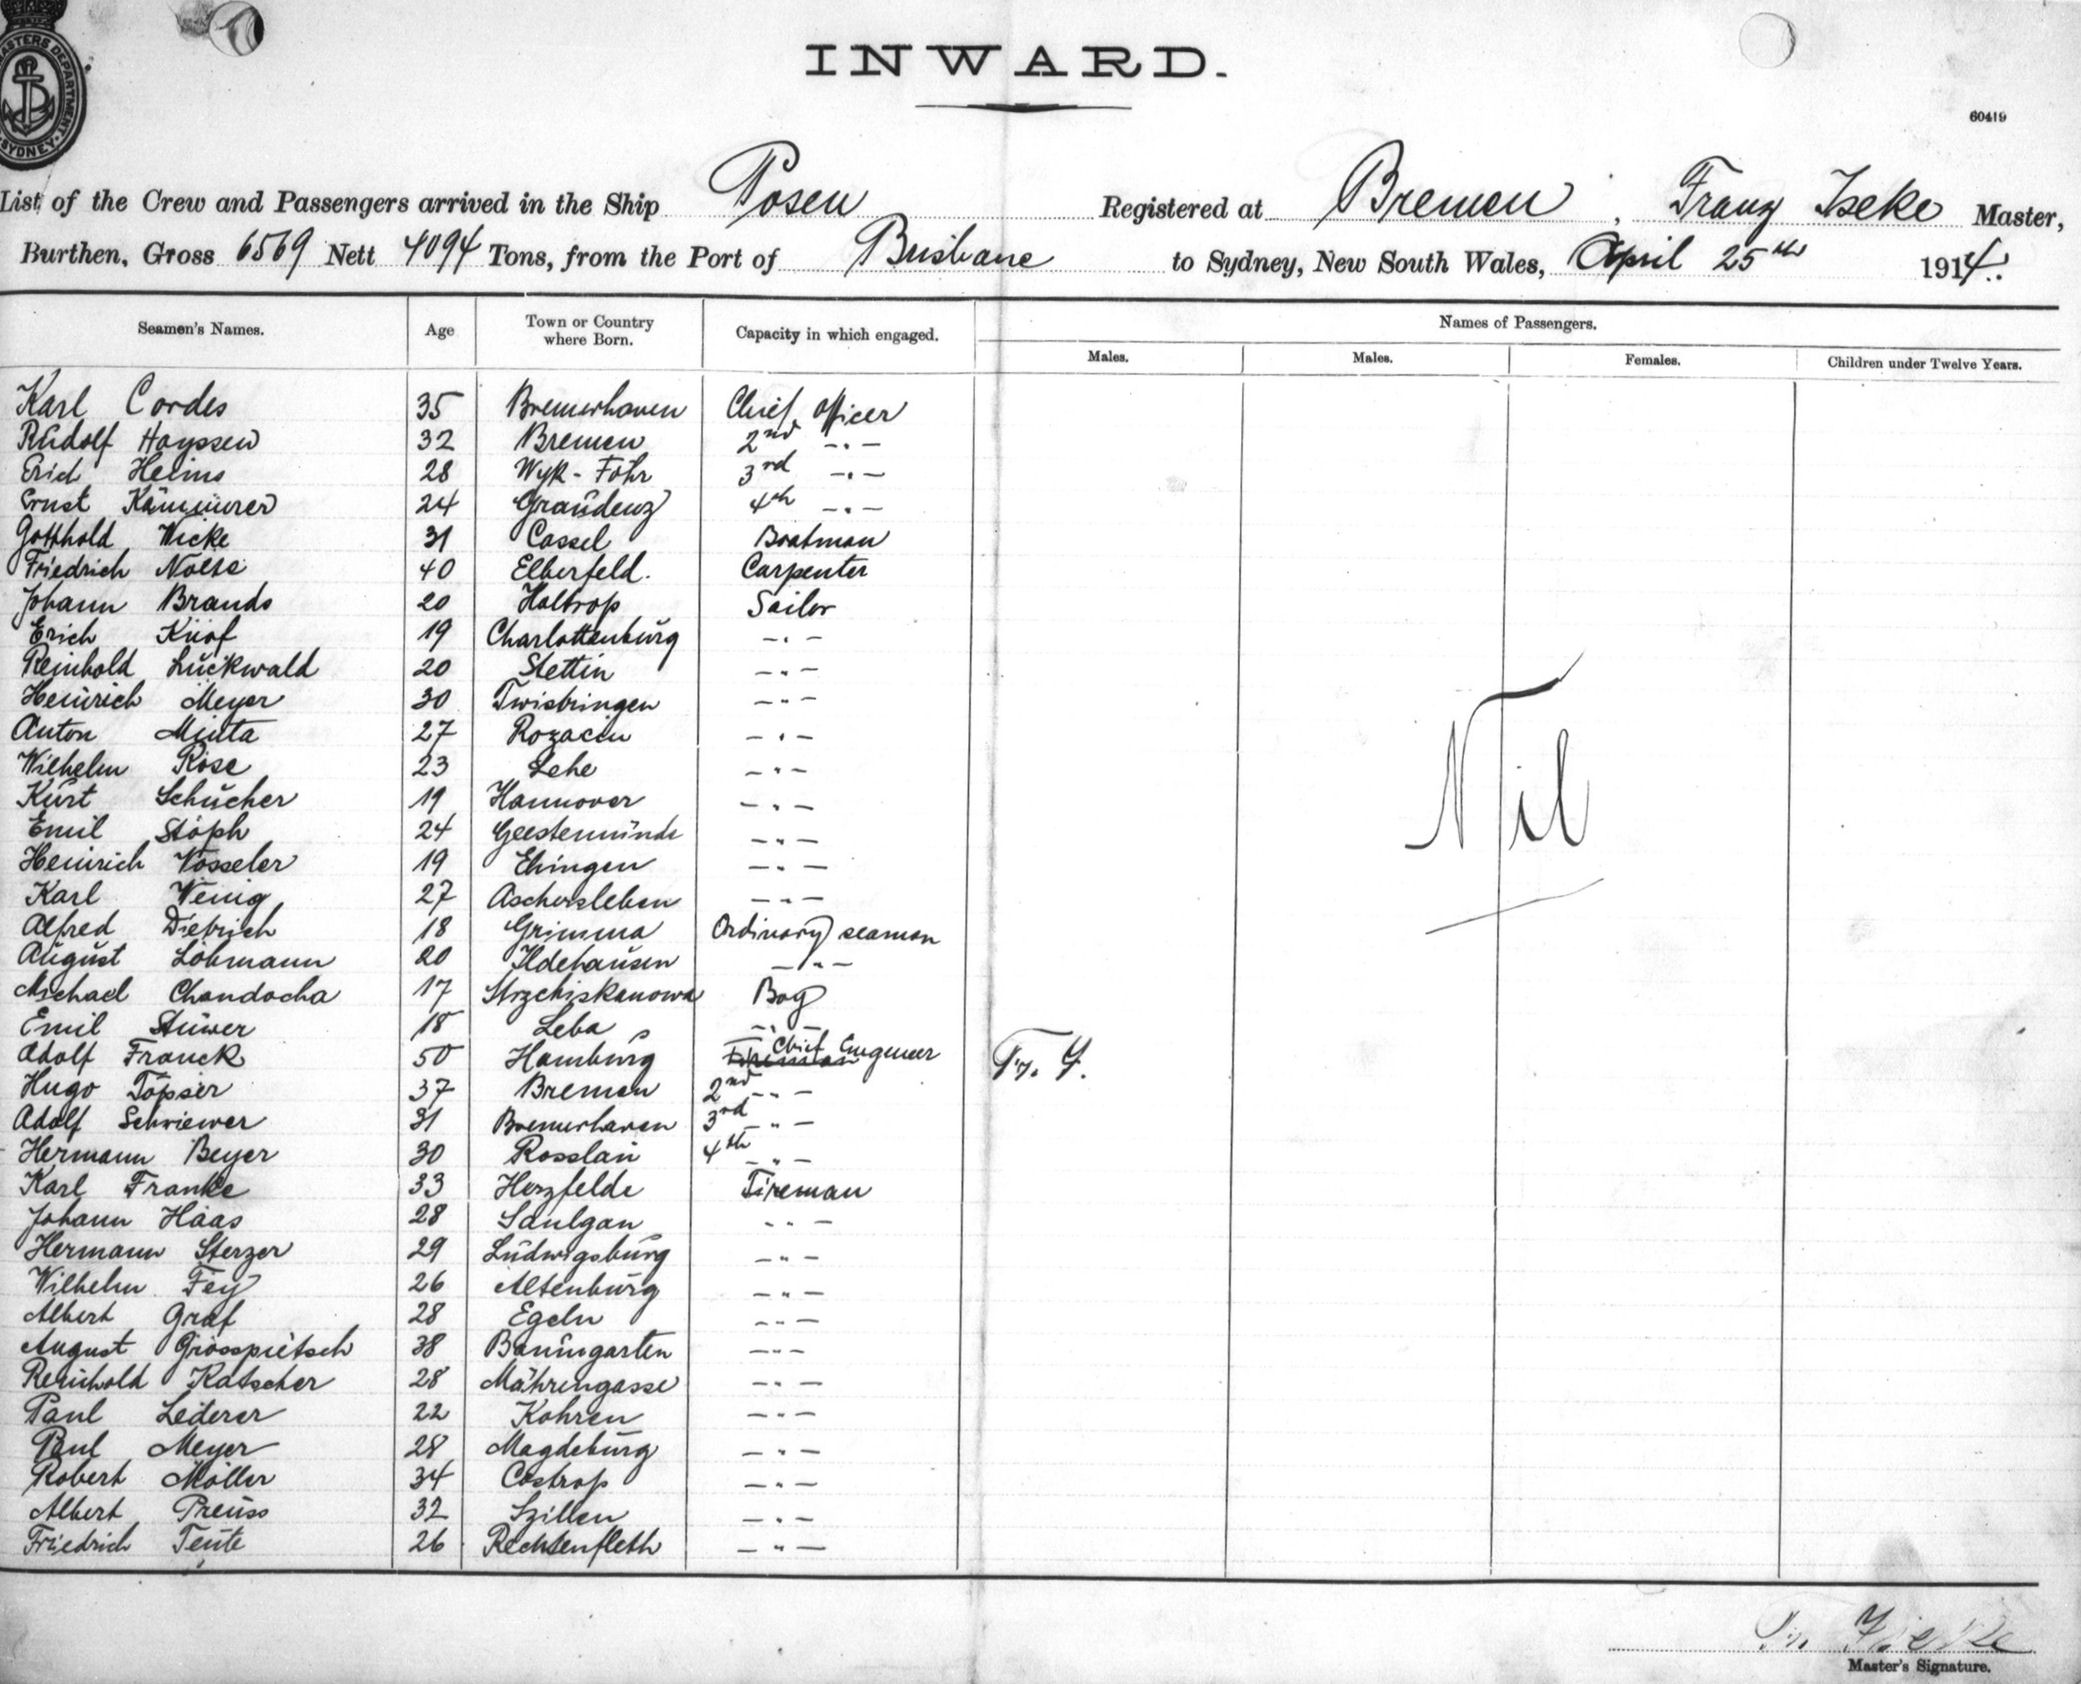 MASTERS DEPARTMENT
SYDNEY
INWARD.
60419
List of the Crew and Passengers arrived in the Ship Posen Registered at Bremen, Franz Iseke Master,
Burthen, Gross 6569 Nett 4094 Tons, from the Port of Brisbane to Sydney, New South Wales, April 25th 1914.
Seamen's Names. Age Town or Country where Born. Capacity in which engaged. Names of Passengers.
Males. Males. Females. Children under Twelve Years.
Karl Cordes 35 Bremerhaven Chief officer
Rudolf Hayssen 32 Bremen 2nd -"-
Erich Helms 28 Wyk-Föhr 3rd -"-
Ernst Kämmerer 24 Graudenz 4th -"-
Gotthold Wicke 31 Cassel Boatman
Friedrich Nolte 40 Elberfeld. Carpenter
Johann Brands 20 Holtrop Sailor
Erich 19 Charlottenburg -"-
Reinhold Luckwald 20 Stettin -"-
Heinrich Meyer 30 Twistringen -"-
Anton Minta 27 Rozacin -"-
Wilhelm Rose 23 Lehe -"-
Kurt Schucher 19 Hannover -"-
Emil Stöph 24 Geestemünde -"-
Heinrich Vosseler 19 Ehingen -"-
Karl Wenig 27 Aschersleben -"-
Alfred Dietrich 18 Grimma Ordinary seaman
August Lohmann 20 Ildehausen -"-
Michael Chandocha 17 Boy
Emil Stüwer 18 Leba -"-
Adolf Franck 50 Hamburg Fireman Chief Engineer Fr. I.
Hugo Töpser 37 Bremen 2nd -"-
Adolf Schriewer 31 Bremerhaven 3rd -"-
Hermann Beyer 30 Rosslau 4th -"-
Karl Franke 33 Herzfelde Fireman
Johann Haas 28 Saulgau -"-
Hermann Sterzer 29 Ludwigsburg -"-
Wilhelm Fey 26 Altenburg -"-
Albert Graf 28 Egeln -"-
August Grosspietsch 38 Baumgarten -"-
Reinhold Katscher 28 Mährengasse -"-
Paul Lederer 22 Kohren -"-
Paul Meyer 28 Magdeburg -"-
Robert Möller 34 Castrop -"-
Albert Preuss 32 Szillen -"-
Friedrich Teute 26 Rechtenfleth -"-
Nil
Fr. Iseke
Master's Signature.